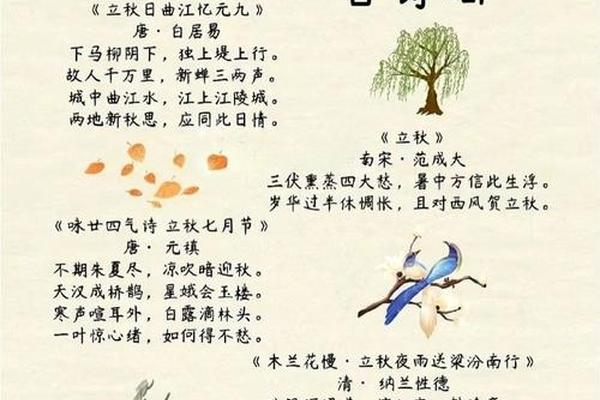 《立秋日曲江忆元九》
唐·白居易
下马柳阴下，独上堤上行。
故人千万里，新蝉三两声。
城中曲江水，江上江陵城。
两地新秋思，应同此日情。
《立秋》
南宋·范成大
三伏熏蒸四大愁，暑中方信此生浮。
岁华过半休惆怅，且对西风贺立秋。
《咏廿四气诗 立秋七月节》
唐·元稹
不期朱夏尽，凉吹暗迎秋。
天汉成桥鹊，星娥会玉楼。
寒声喧耳外，白露滴林头。
一叶惊心绪，如何得不愁。
《木兰花慢·立秋夜雨送梁汾南行》
清·纳兰性德